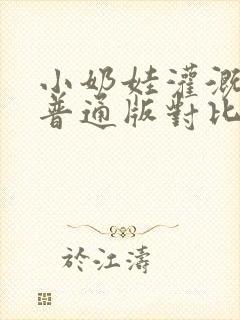 小奶娃灌溉
普通版對比
於江濤